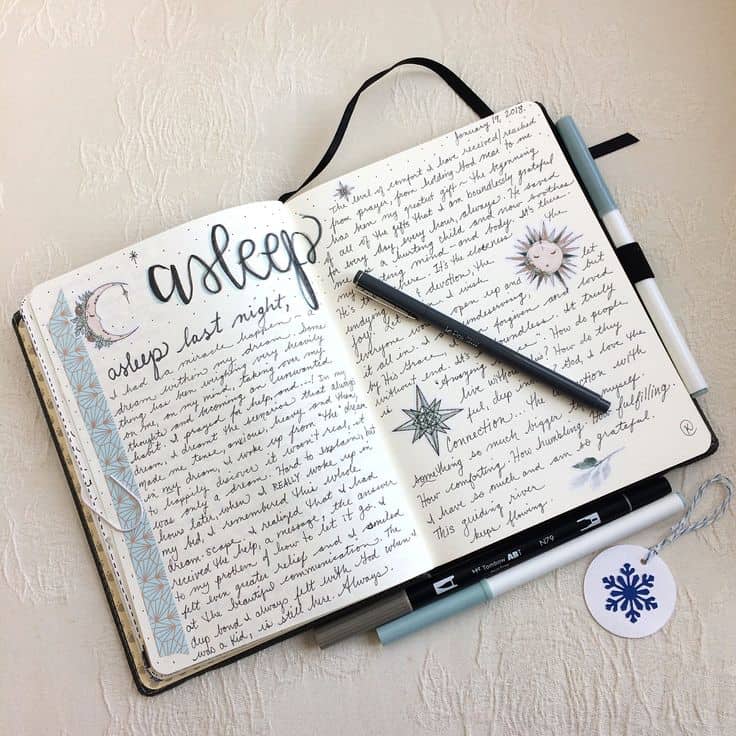 asleep
asleep last night,
I had a miracle happen ~ a
dream within my dream. Some
thing has been weighing very heavily
on me, on my mind, taking over my
thoughts and becoming an unwanted
habit. I prayed for help and...! In my
dream, I dreamt the scenario that always
made me tense, anxious, heavy and then,
in my dream, I woke up from the dream
& happily discover it wasn't real, it
was only a dream. Hard to explain, but
hours later, when I REALLY woke up in
my bed, I remembered this whole
dream-scape. I realized that I had
received the help, a message, the answer
to my problem & how to let it go. I
felt even greater relief and I smiled
at the beautiful communication. The
deep bond I always felt with God when I
was a kid, is still here. Always.
January 19, 2018.
The level of comfort I have received/reached
from prayer, from holding God near to me
has been my greatest gift ~ the beginning
of all the gifts that I am boundlessly grateful
for every day, every hour, always. He saved
me as a hurting child and now soothes
my hurting mind - and body. It's there
It's the closeness, the
undying devotion, the
joy. I wish
Everyone open up and let
it all in. understanding, but
By His grace, forgiven and loved
without end. It's boundless. It truly
is amazing. How do people
live without Him? How do they
feel, deep inside? God, I love the
Connection... the connection with
something so much bigger than myself.
How comforting. How humbling. How fulfilling.
I have so much and am so grateful.
This guiding river
keeps flowing.
K
Tombow ABT N79